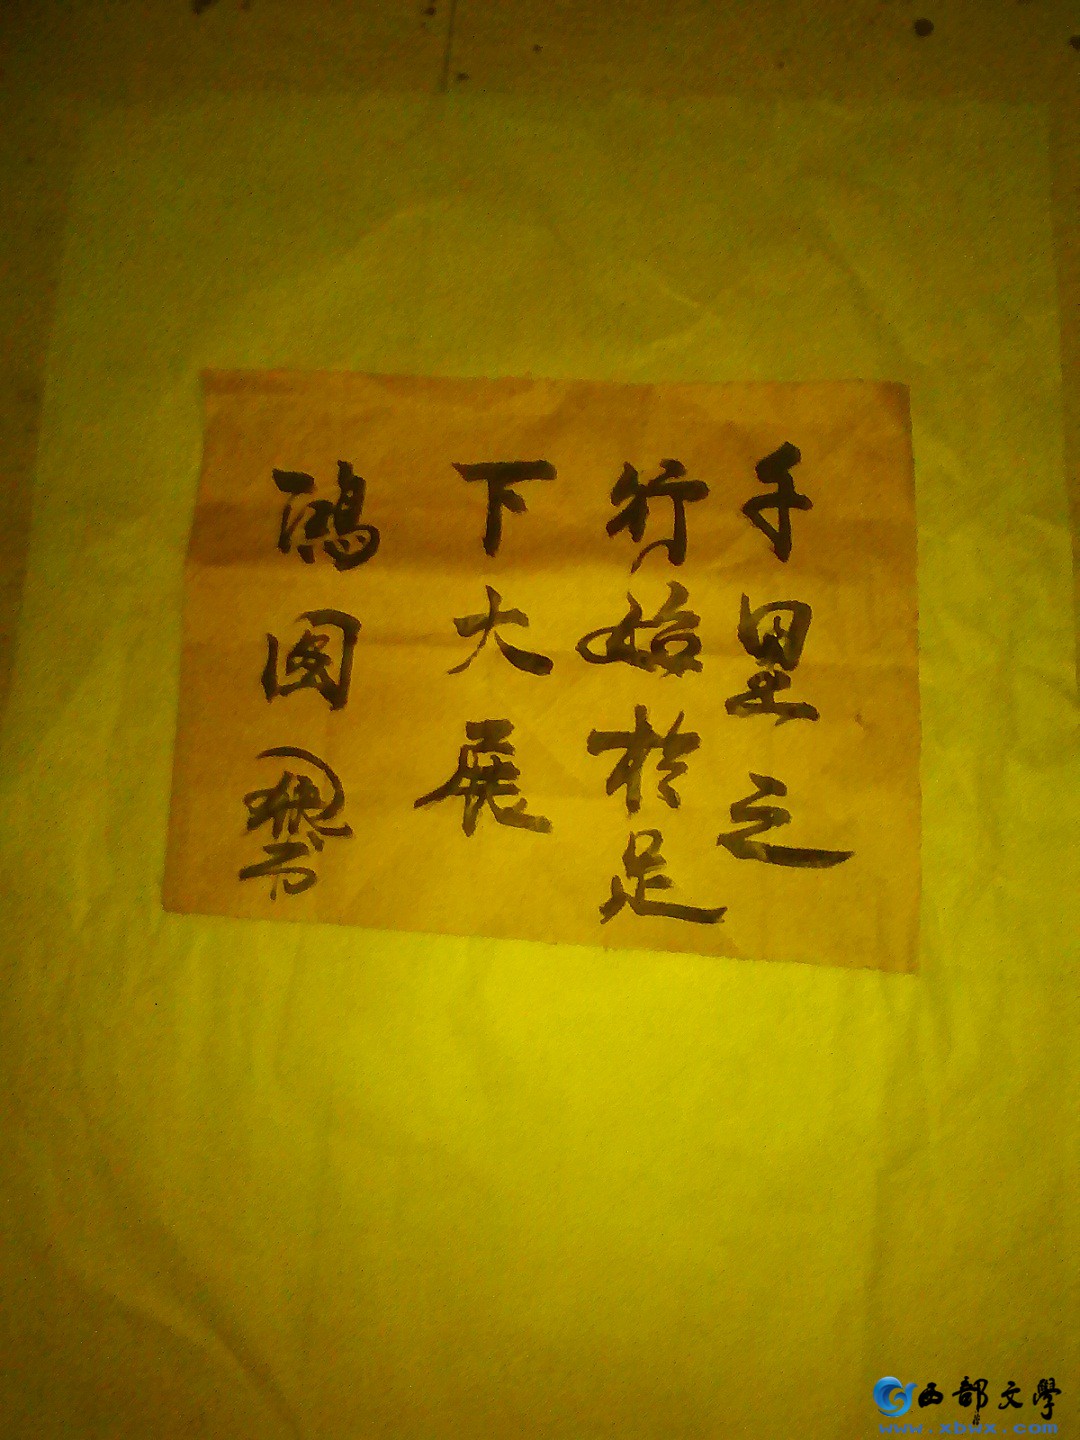 千里之
行始於足
下大展
鸿图
西部文學
www.xbwx.com